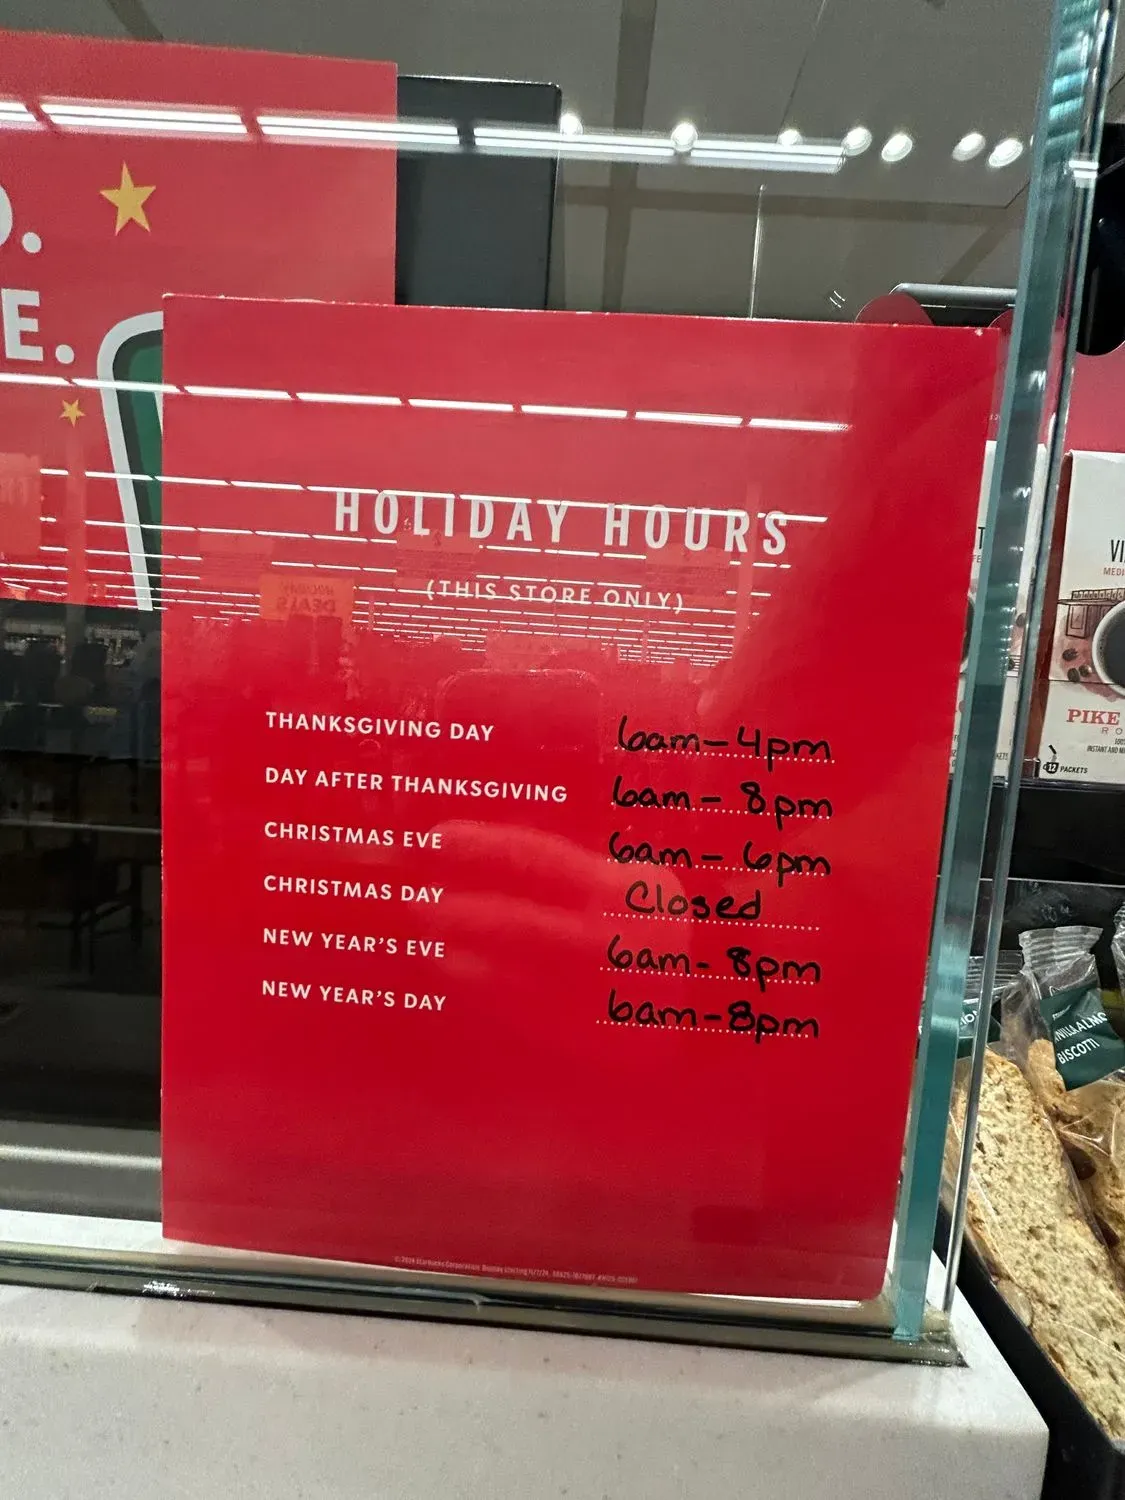 E.
HOLIDAY HOURS
(THIS STORE ONLY)
THANKSGIVING DAY 6am-4pm
DAY AFTER THANKSGIVING 6am- 8pm
CHRISTMAS EVE 6am- 6pm
CHRISTMAS DAY Closed
NEW YEAR'S EVE 6am- 8pm
NEW YEAR'S DAY 6am-8pm
HOLIDAY
DEALS
PIKE
12 PACKETS
BISCOTTI